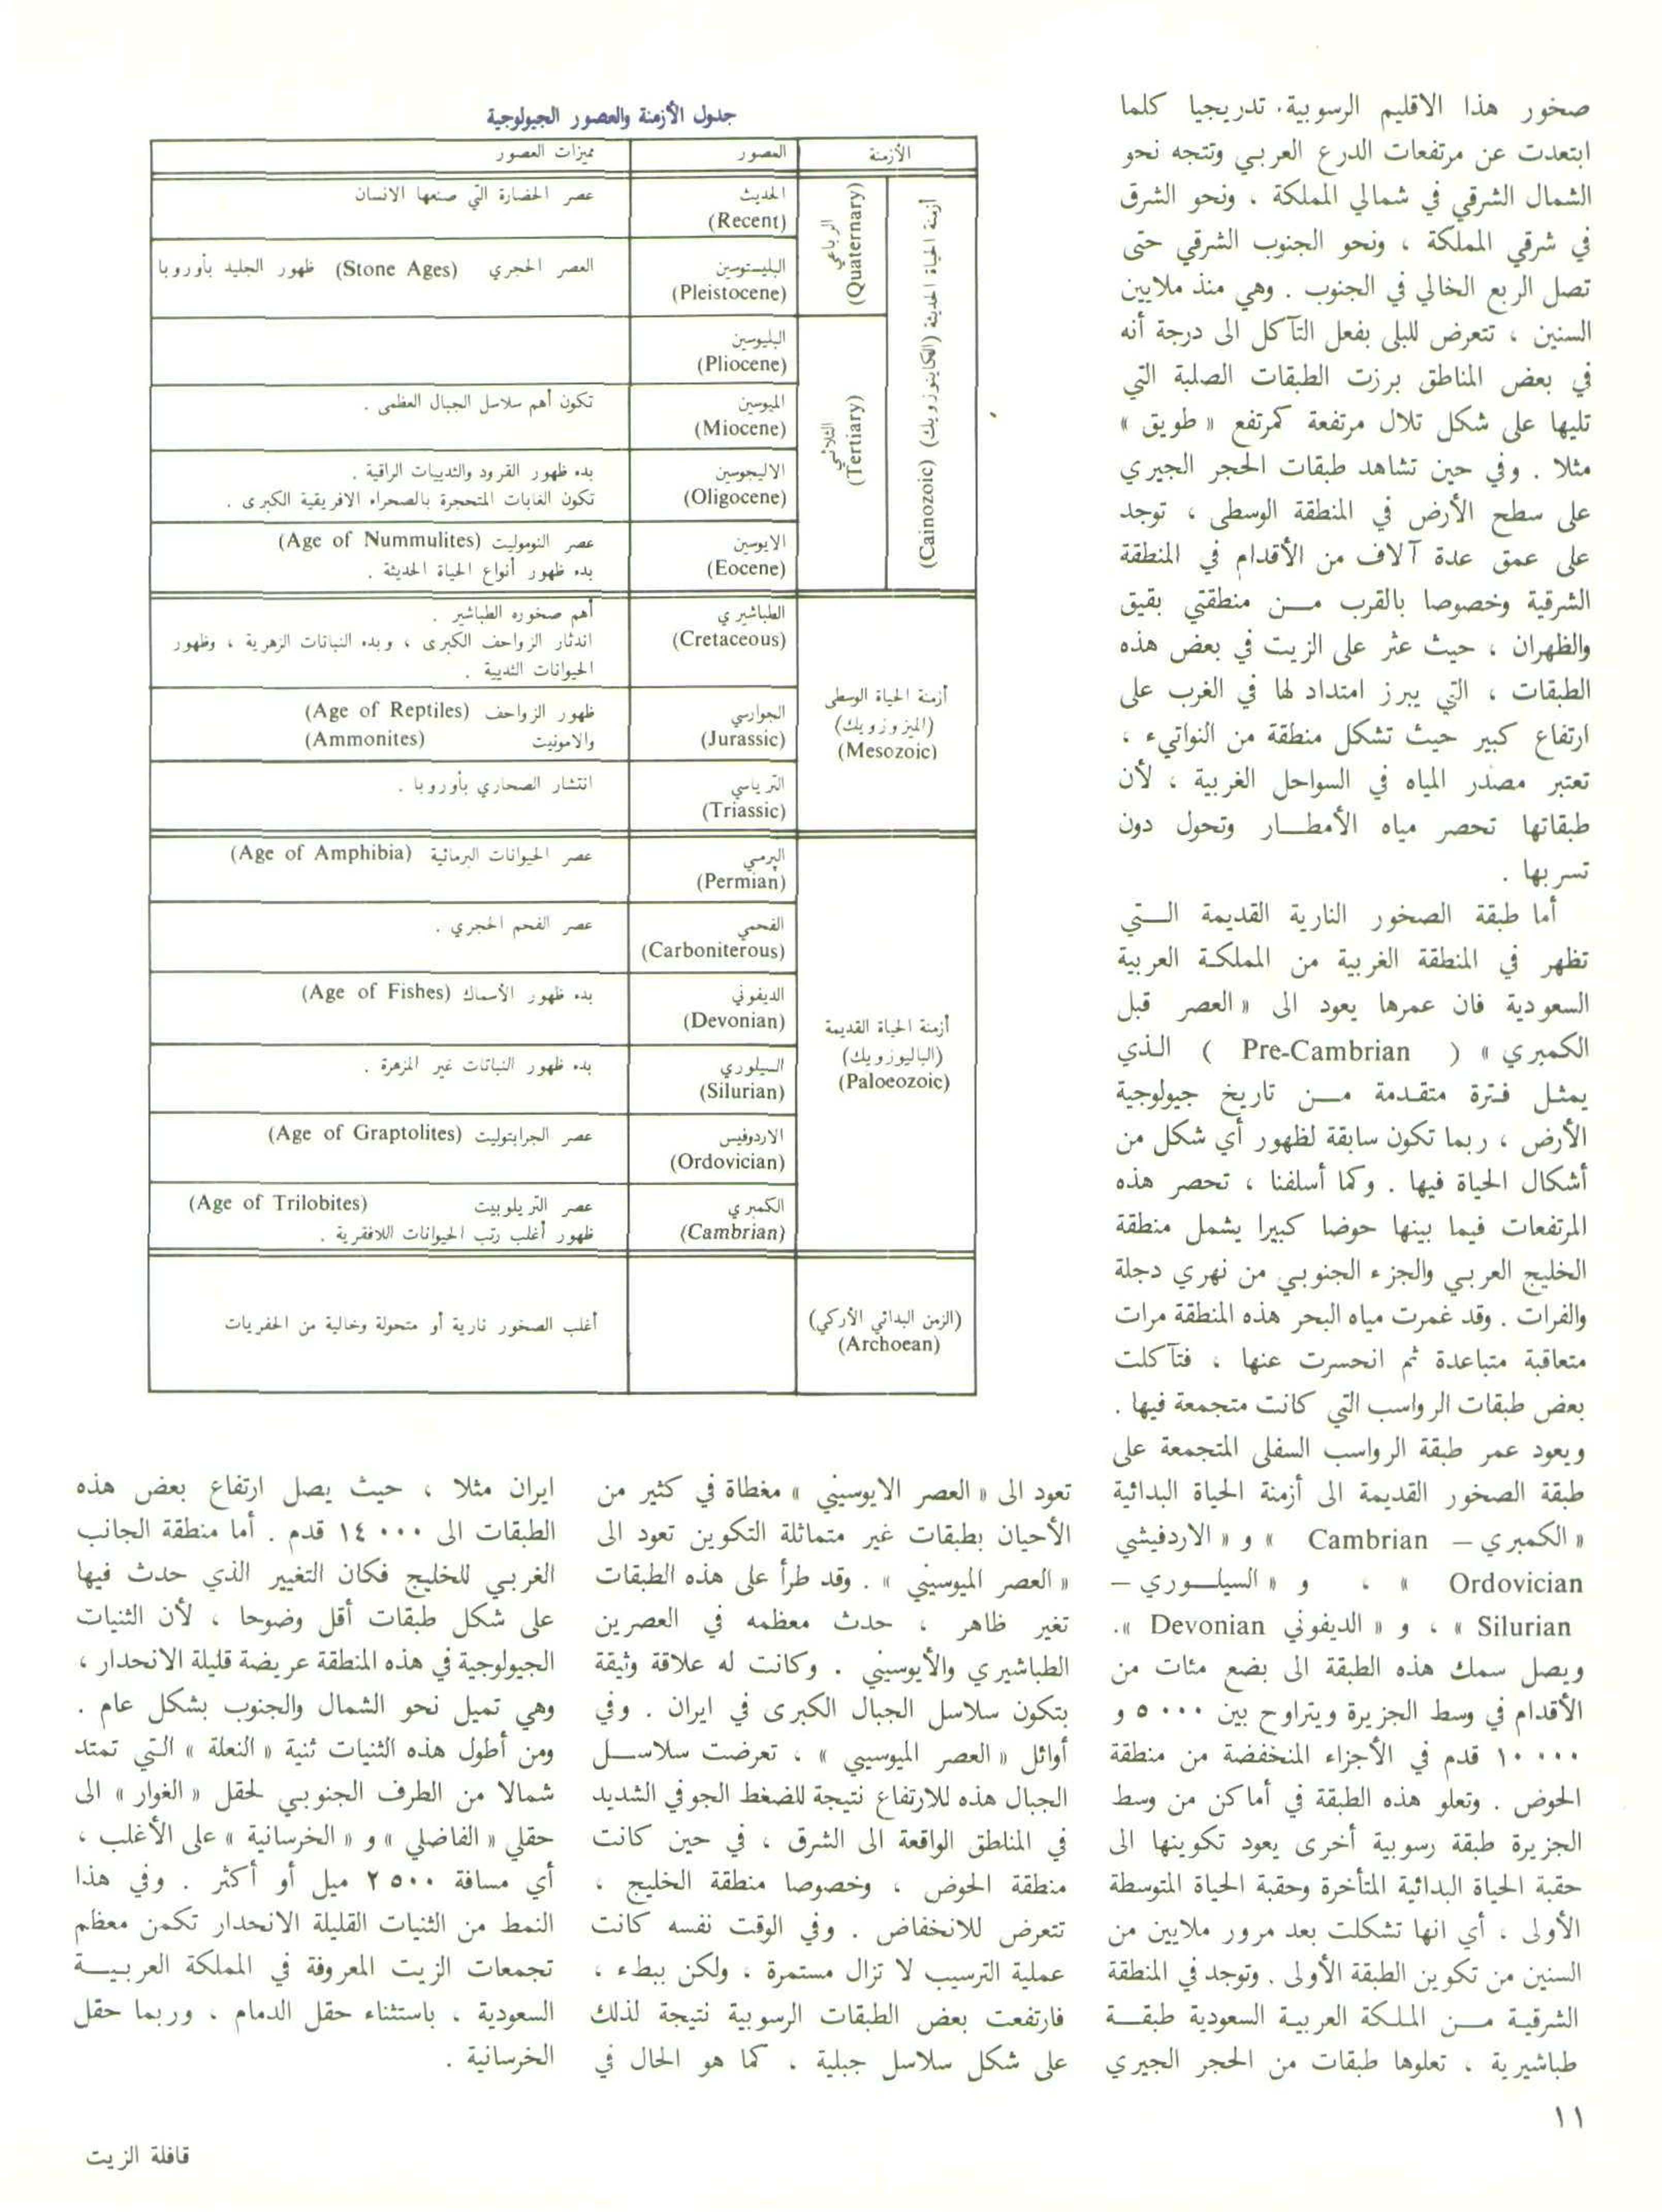 صخور هذا الاقليم الرسوبية. تدريجيا كلما
ابتعدت عن مرتفعات الدرع العربي وتتجه نحو
الشمال الشرقي في شمالي المملكة ، ونحو الشرق
في شرقي المملكة ، ونحو الجنوب الشرقي حتى
تصل الربع الخالي في الجنوب . وهي منذ ملايين
السنين ، تتعرض للبلى بفعل التآكل الى درجة أنه
في بعض المناطق برزت الطبقات الصلبة التي
تليها على شكل تلال مرتفعة كمرتفع « طويق »
مثلا . وفي حين تشاهد طبقات الحجر الجيري
على سطح الأرض في المنطقة الوسطى ، توجد
على عمق عدة آلاف من الأقدام في المنطقة
الشرقية وخصوصا بالقرب من منطقتي بقيق
والظهران ، حيث عثر على الزيت في بعض هذه
الطبقات ، التي يبرز امتداد لها في الغرب على
ارتفاع كبير حيث تشكل منطقة من النواتيء ،
تعتبر مصدر المياه في السواحل الغربية ، لأن
طبقاتها تحصر مياه الأمطار وتحول دون
تسربها .
أما طبقة الصخور النارية القديمة التي
تظهر في المنطقة الغربية من المملكة العربية
السعودية فان عمرها يعود الى « العصر قبل
الكمبري » ( Pre-Cambrian ) الذي
يمثل فترة متقدمة من تاريخ جيولوجية
الأرض ، ربما تكون سابقة لظهور أي شكل من
أشكال الحياة فيها . وكما أسلفنا ، تحصر هذه
المرتفعات فيما بينها حوضا كبيرا يشمل منطقة
الخليج العربي والجزء الجنوبي من نهري دجلة
والفرات . وقد غمرت مياه البحر هذه المنطقة مرات
متعاقبة متباعدة ثم انحسرت عنها ، فتآكلت
بعض طبقات الرواسب التي كانت متجمعة فيها .
ويعود عمر طبقة الرواسب السفلى المتجمعة على
طبقة الصخور القديمة الى أزمنة الحياة البدائية
« الكمبري – Cambrian » و « الاردفيشي
Ordovician » ، و « السيلوري –
Silurian » ، و « الديفوني Devonian ».
ويصل سمك هذه الطبقة الى بضع مئات من
الأقدام في وسط الجزيرة ويتراوح بين ٥٠٠٠ و
١٠٠٠٠ قدم في الأجزاء المنخفضة من منطقة
الحوض . وتعلو هذه الطبقة في أماكن من وسط
الجزيرة طبقة رسوبية أخرى يعود تكوينها الى
حقبة الحياة البدائية المتأخرة وحقبة الحياة المتوسطة
الأولى ، أي انها تشكلت بعد مرور ملايين من
السنين من تكوين الطبقة الأولى . وتوجد في المنطقة
الشرقية من الملكة العربية السعودية طبقة
طباشيرية ، تعلوها طبقات من الحجر الجيري
جدول الأزمنة والعصور الجيولوجية
الأزمنة العصور مميزات العصور
أزمنة الحياة الحديثة (الكاينوزويك) (Cainozoic)
الرباعي
(Quaternary)
الحديث عصر الحضارة التي صنعها الانسان
(Recent)
البليستوسين العصر الحجري (Stone Ages) ظهور الجليد بأوروبا
(Pleistocene)
الثلاثي
(Tertiary)
البليوسين
(Pliocene)
الميوسين تكون أهم سلاسل الجبال العظمى .
(Miocene)
الاليجوسين بدء ظهور القرود والثدييات الراقية .
(Oligocene) تكون الغابات المتحجرة بالصحراء الافريقية الكبرى .
الايوسين عصر النوموليت (Age of Nummulites)
(Eocene) بدء ظهور أنواع الحياة الحديثة .
أزمنة الحياة الوسطى
(الميزوزويك)
(Mesozoic)
الطباشيري أهم صخوره الطباشير .
(Cretaceous) اندثار الزواحف الكبرى ، وبدء النباتات الزهرية ، وظهور
الحيوانات الثديية .
الجوارسي ظهور الزواحف (Age of Reptiles)
(Jurassic) والامونيت (Ammonites)
الترياسي انتشار الصحاري بأوروبا .
(Triassic)
أزمنة الحياة القديمة
(الباليوزويك)
(Paloeozoic)
البرمي عصر الحيوانات البرمائية (Age of Amphibia)
(Permian)
الفحمي عصر الفحم الحجري .
(Carboniterous)
الديفوني بدء ظهور الأسماك (Age of Fishes)
(Devonian)
السيلوري بدء ظهور النباتات غير المزهرة .
(Silurian)
الاردوفيس عصر الجرابتوليت (Age of Graptolites)
(Ordovician)
الكمبري عصر التريلوبيت (Age of Trilobites)
(Cambrian) ظهور أغلب رتب الحيوانات اللافقرية .
(الزمن البدائي الأركي) أغلب الصخور نارية أو متحولة وخالية من الحفريات
(Archoean)
تعود الى « العصر الايوسيني » مغطاة في كثير من
الأحيان بطبقات غير متماثلة التكوين تعود الى
« العصر الميوسيني » . وقد طرأ على هذه الطبقات
تغير ظاهر ، حدث معظمه في العصرين
الطباشيري والأيوسيني . وكانت له علاقة وثيقة
بتكون سلاسل الجبال الكبرى في ايران . وفي
أوائل « العصر الميوسيي » ، تعرضت سلاسل
الجبال هذه للارتفاع نتيجة للضغط الجوفي الشديد
في المناطق الواقعة الى الشرق ، في حين كانت
منطقة الحوض ، وخصوصا منطقة الخليج ،
تتعرض للانخفاض . وفي الوقت نفسه كانت
عملية الترسيب لا تزال مستمرة ، ولكن ببطء ،
فارتفعت بعض الطبقات الرسوبية نتيجة لذلك
على شكل سلاسل جبلية ، كما هو الحال في
ايران مثلا ، حيث يصل ارتفاع بعض هذه
الطبقات الى ١٤٠٠٠ قدم . أما منطقة الجانب
الغربي للخليج فكان التغيير الذي حدث فيها
على شكل طبقات أقل وضوحا ، لأن الثنيات
الجيولوجية في هذه المنطقة عريضة قليلة الانحدار ،
وهي تميل نحو الشمال والجنوب بشكل عام .
ومن أطول هذه الثنيات ثنية « النعلة » التي تمتد
شمالا من الطرف الجنوبي لحقل « الغوار » الى
حقلي « الفاضلي » و « الخرسانية » على الأغلب ،
أي مسافة ٢٥٠٠ ميل أو أكثر . وفي هذا
النمط من الثنيات القليلة الانحدار تكمن معظم
تجمعات الزيت المعروفة في المملكة العربية
السعودية ، باستثناء حقل الدمام ، وربما حقل
الخرسانية .
١١
قافلة الزيت